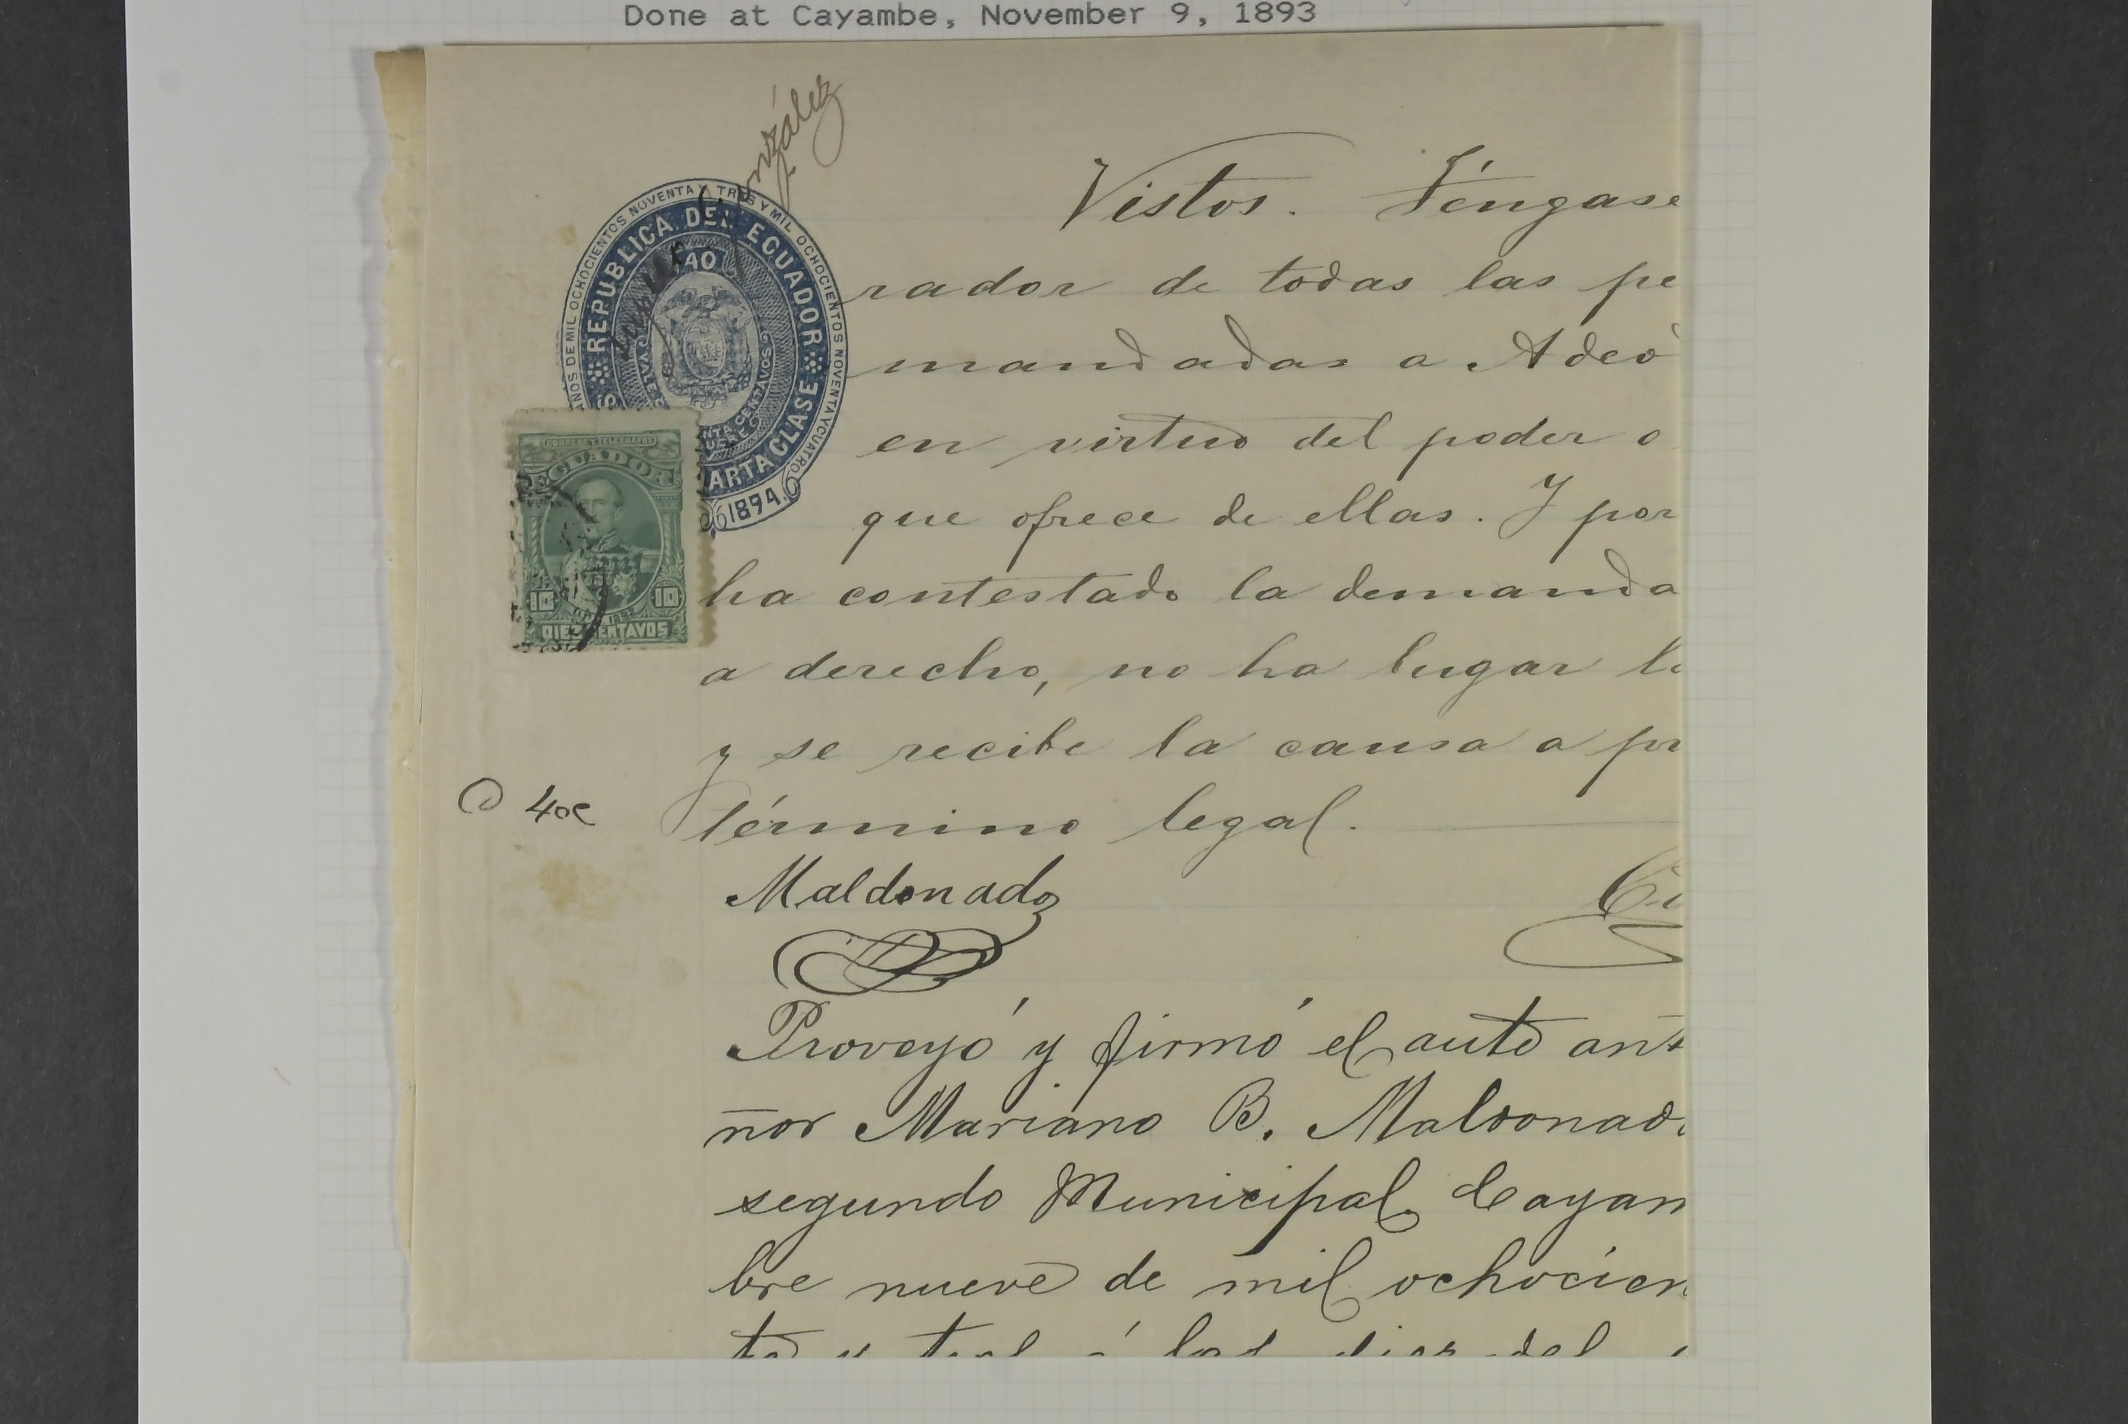 Done at Cayambe, November 9, 1893
González
AÑOS DE MIL OCHOCIENTOS NOVENTA Y TRES Y MIL OCHOCIENTOS NOVENTA Y CUATRO
REPUBLICA DEL ECUADOR
40
VALE
NTA CENTAVOS
SUCRE
ARTA CLASE
1894
CORREOS Y TELEGRAFOS
ECUADOR
10 10
DIEZ CENTAVOS
Vistos. Téngase
rador de todas las pe
mandadas a Adeo
en virtud del poder o
que ofrece de ellas. Y por
ha contestado la demanda
a derecho, no ha lugar l
y se recibe la causa a pr
40c
término legal.
Maldonado
Proveyó y firmó el auto ant
ñor Mariano B. Maldonad
segundo Municipal. Cayam
bre nueve de mil ochocien